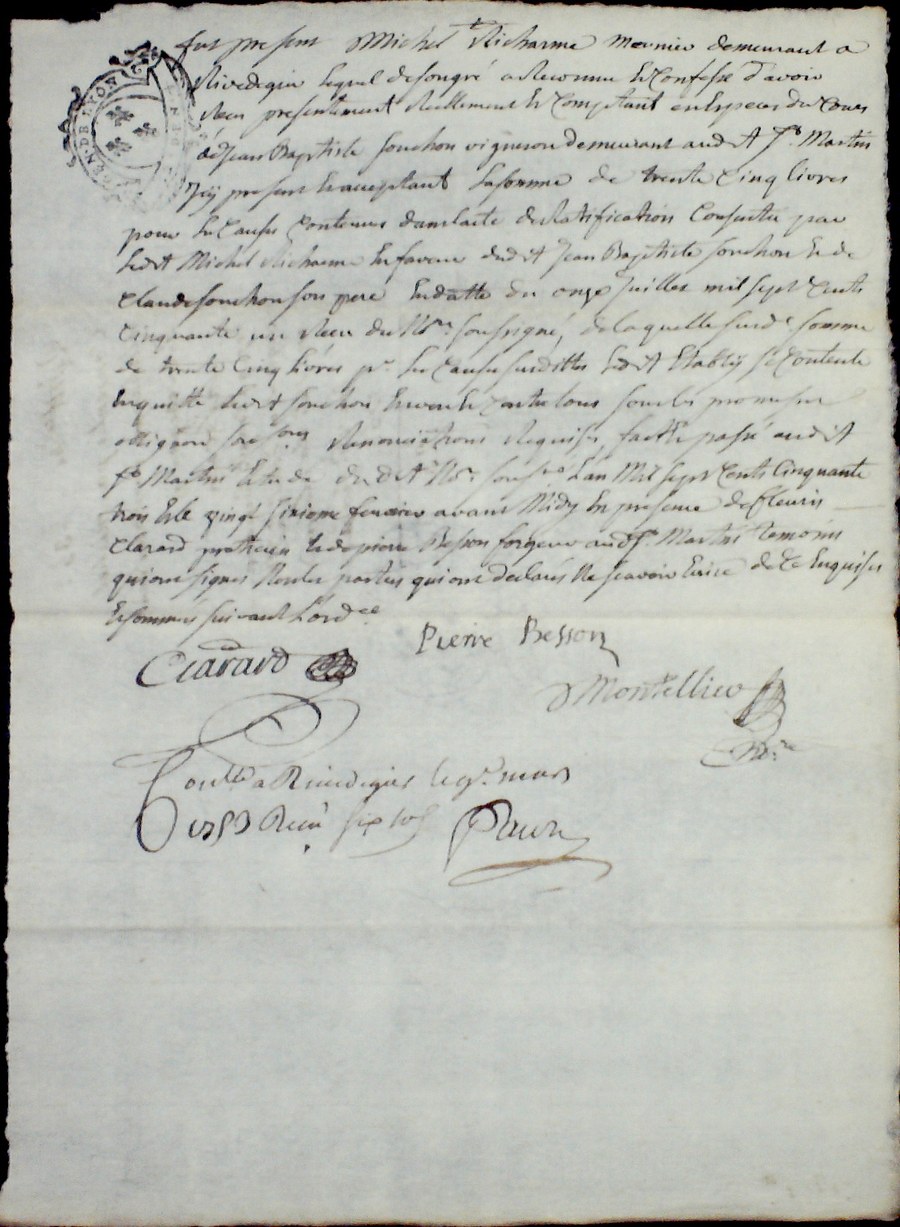 GEN. DE LYON
fut present Michel Richarme Meunier demeurant a
Rivedegier lequel de son gré a Reconnu Et Confessé d'avoir
Receu presentement Reellement Et Comptant en Especes du Cours
de Jean Baptiste Souchon vigneron demeurant audit St. Martin
Icy present Et acceptant La somme de trente Cinq livres
pour les Causes Contenues dans l'acte de Ratification Consentie par
Ledit Michel Richarme En faveur dudit Jean Baptiste Souchon Et de
Claude Souchon son pere En datte du onze Juillet mil sept Cents
Cinquante un Receu du No.re soussigné, de laquelle susd.e somme
de trente Cinq livres p.r les Causes susdittes Ledit Etably se Contente
En quitte Ledit Souchon Envers Et Contre tous sous les promesses
obligaons Renonciations Requises, fait Et passé audit
St. Martin Etude dudit No.re sous.né L'an Mil sept Cents Cinquante
trois Et le vingt sixieme fevrier avant Midy En presence de fleuris
Clarard praticien Et de pierre Besson forgeur aud. St. Martin temoins
qui ont signés Non les parties qui ont declarés Ne scavoir Ecrire de Ce Enquises
Et sommés suivant L'ord.ce
Clarard
Pierre Besson
Montellier
No.re
Conllé a Rivedegier le 9.e mars
1753 Receu six sols